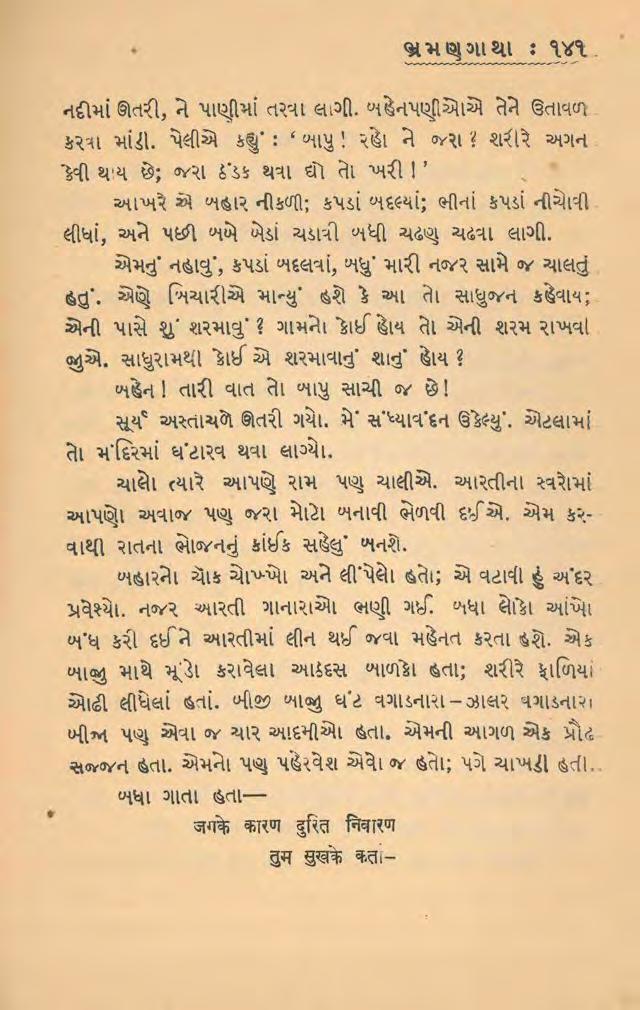 ભ્રમણગાથા : ૧૪૧
નદીમાં ઊતરી, ને પાણીમાં તરવા લાગી. બહેનપણીઓએ તેને ઉતાવળ
કરવા માંડી. પેલીએ કહ્યું : ‘બાપુ ! રહો ને જરા ? શરીરે અગન
કેવી થાય છે; જરા ઠંડક થવા દ્યો તો ખરી !’
આખરે એ બહાર નીકળી; કપડાં બદલ્યાં; ભીનાં કપડાં નીચોવી
લીધાં, અને પછી બખે બેડાં ચડાવી બધી ચઢણ ચઢવા લાગી.
એમનું નહાવું, કપડાં બદલવાં, બધું મારી નજર સામે જ ચાલતું
હતું. એણે બિચારીએ માન્યું હશે કે આ તો સાધુજન કહેવાય;
એની પાસે શું શરમાવું ? ગામનો કોઈ હોય તો એની શરમ રાખવી
જોઈએ. સાધુરામથી કોઈ એ શરમાવાનું શાનું હોય ?
બહેન ! તારી વાત તો બાપુ સાચી જ છે !
સૂર્ય અસ્તાચળે ઊતરી ગયો. મેં સંધ્યાવંદન ઉકેલ્યું. એટલામાં
તો મંદિરમાં ઘંટારવ થવા લાગ્યો.
ચાલો ત્યારે આપણે રામ પણ ચાલીએ. આરતીના સ્વરોમાં
આપણો અવાજ પણ જરા મોટો બનાવી ભેળવી દઈએ. એમ કર-
વાથી રાતના ભોજનનું કાંઈક સહેલું બનશે.
બહારનો ચૉક ચોખ્ખો અને લીંપેલો હતો; એ વટાવી હું અંદર
પ્રવેશ્યો. નજર આરતી ગાનારાઓ ભણી ગઈ. બધા લોકો આંખો
બંધ કરી દઈને આરતીમાં લીન થઈ જવા મહેનત કરતા હશે. એક
બાજુ માથે મૂંડો કરાવેલા આઠદસ બાળકો હતા; શરીરે ફાળિયાં
ઓઢી લીધેલાં હતાં. બીજી બાજુ ઘંટ વગાડનારા – ઝાલર વગાડનારા
બીજા પણ એવા જ ચાર આદમીઓ હતા. એમની આગળ એક પ્રૌઢ
સજ્જન હતા. એમનો પણ પહેરવેશ એવો જ હતો; પગે ચાખડી હતી.
બધા ગાતા હતા—
जगके कारण दुरित निवारण
तुम सुखके कर्ता–